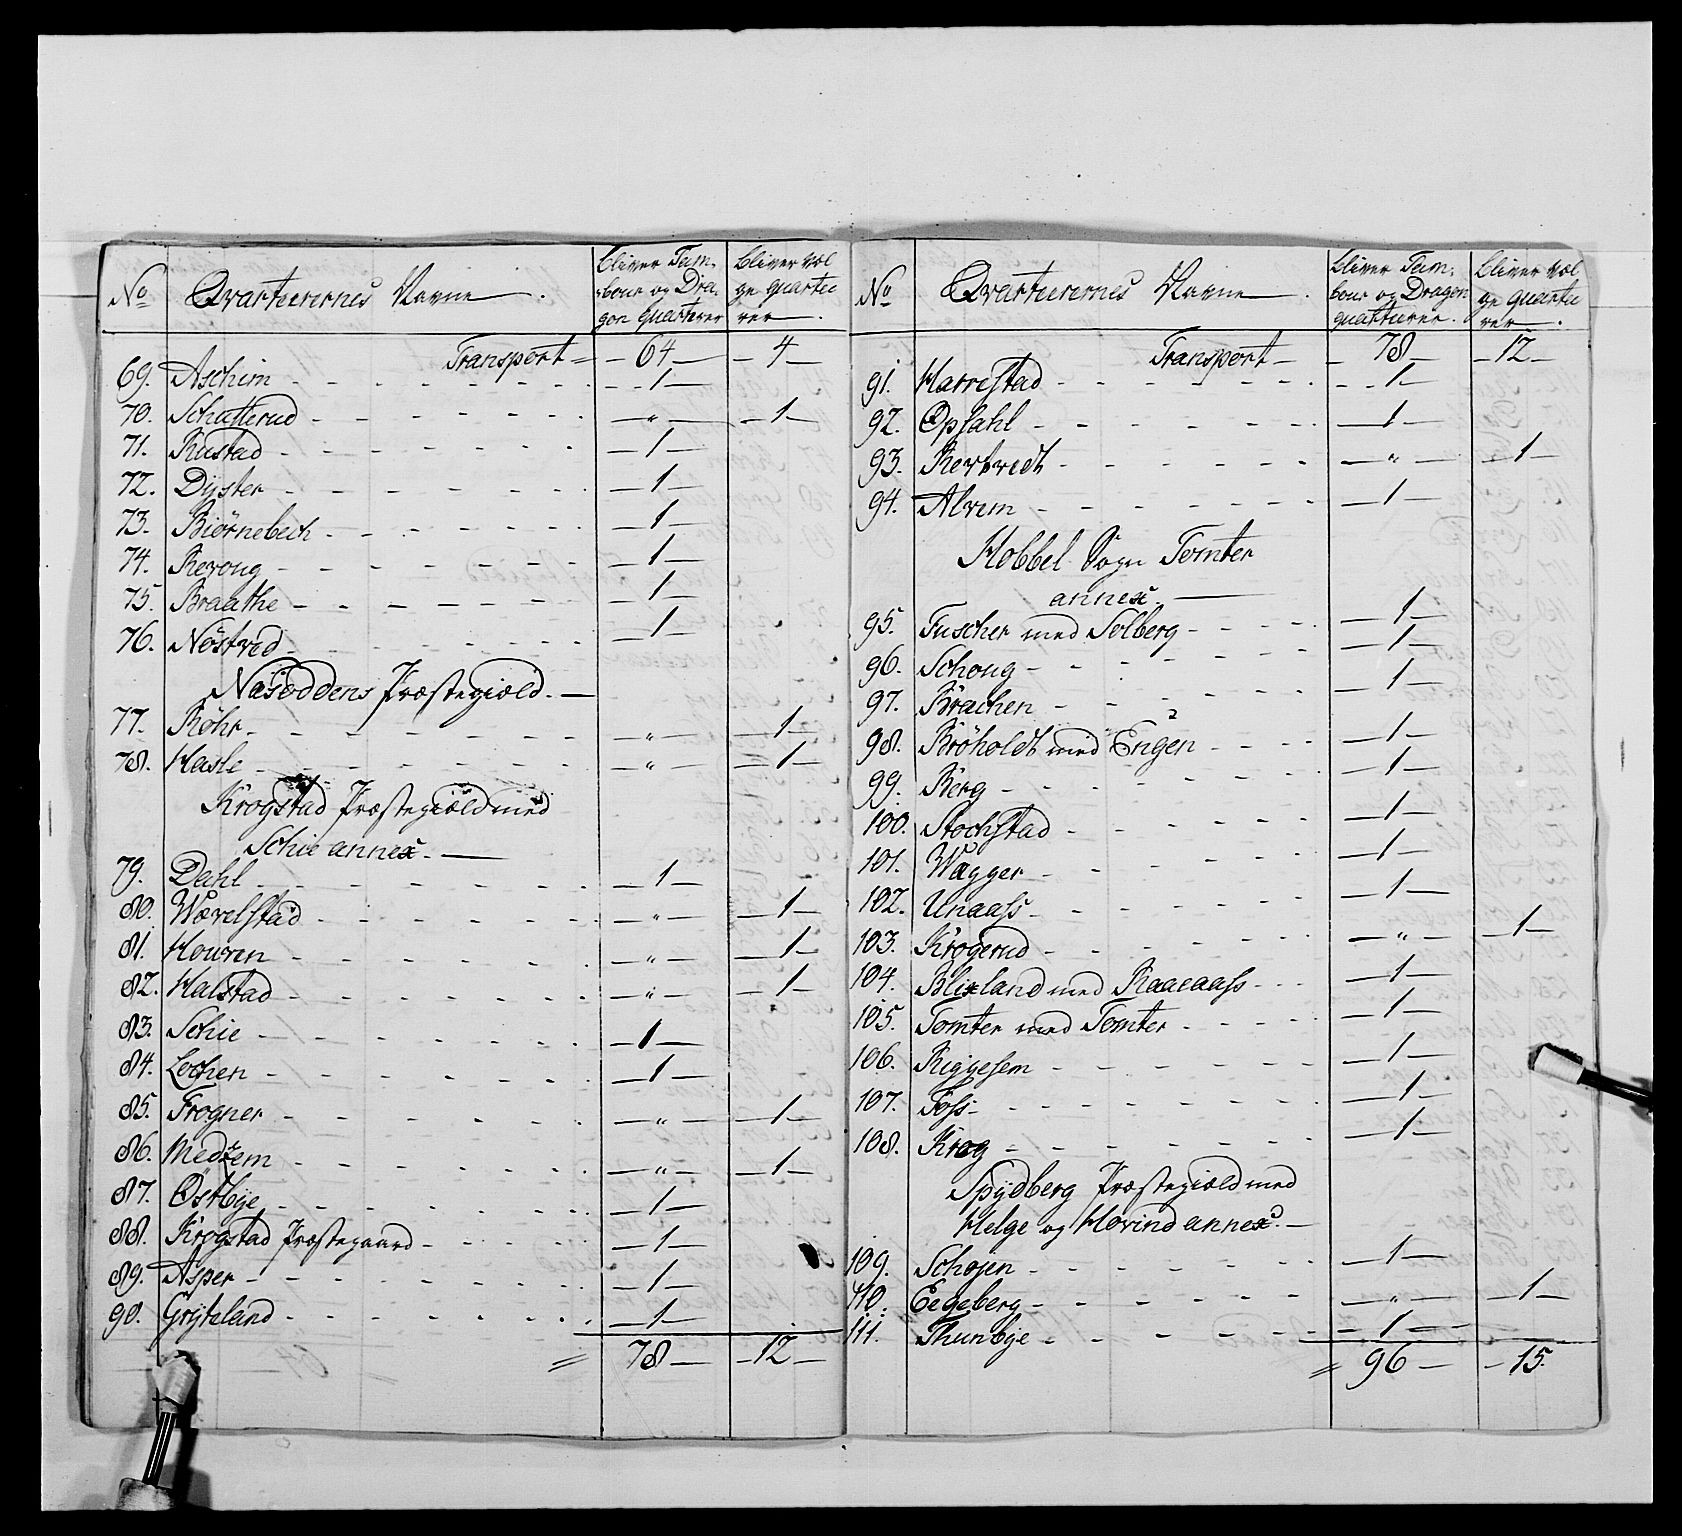 No | Qvarteerernes Navne | bliver Tam-
bour og Dra-
gon Quarterer | bliver Føl
ge quartee
rer
Transport = | 64 | 4
69. Aschim | 1
70. Schatterud | " | 1
71. Rustad | 1
72. Dyster | 1
73. Biørnebech | 1
74. Revoug | 1
75. Braathe | 1
76. Nøstved | 1
Næsoddens Præstegiæld.
77. Røhr | " | 1
78. Hasle | " | 1
Krogstad Præstegiæld med
Schie annex.
79. Dahl | 1
80. Wævelstad | " | 1
81. Houren | " | 1
82. Halstad | " | 1
83. Schie | 1
84. Lochen | 1
85. Frogner | " | 1
86. Medzem | " | 1
87. Østbye | 1
88. Krogstad Præstegaard | 1
89. Asper | 1
90. Gryteland | 1
= 78 | 12
No | Qvarteerernes Navne | bliver Tam-
bour og Dragon
quarteerer. | bliver Føl
ge quartee
rer
Transport | 78 | 12
91. Harrestad | 1
92. Opsahl | 1
93. Kertvedt | " | 1
94. Alvim | 1
Hobbel Sogn Tomter
annex.
95. Fuscher med Solberg | 1
96. Schoug | 1
97. Brachen | 1
98. Brøholdt med Engen | 1
99. Berg | 1
100. Stochstad | 1
101. Wagger | 1
102. Unaass | 1
103. Krogerud | " | 1
104. Blixland med Raaeaass | 1
105. Tomter med Tomter | 1
106. Riggesem | 1
107. Foss | 1
108. Krog | 1
Spydberg Præstegiæld med
Helge og Hovind annex.
109. Schojen | 1
110. Eegeberg | " | 1
111. Thunbye | 1
= 96 | 15.